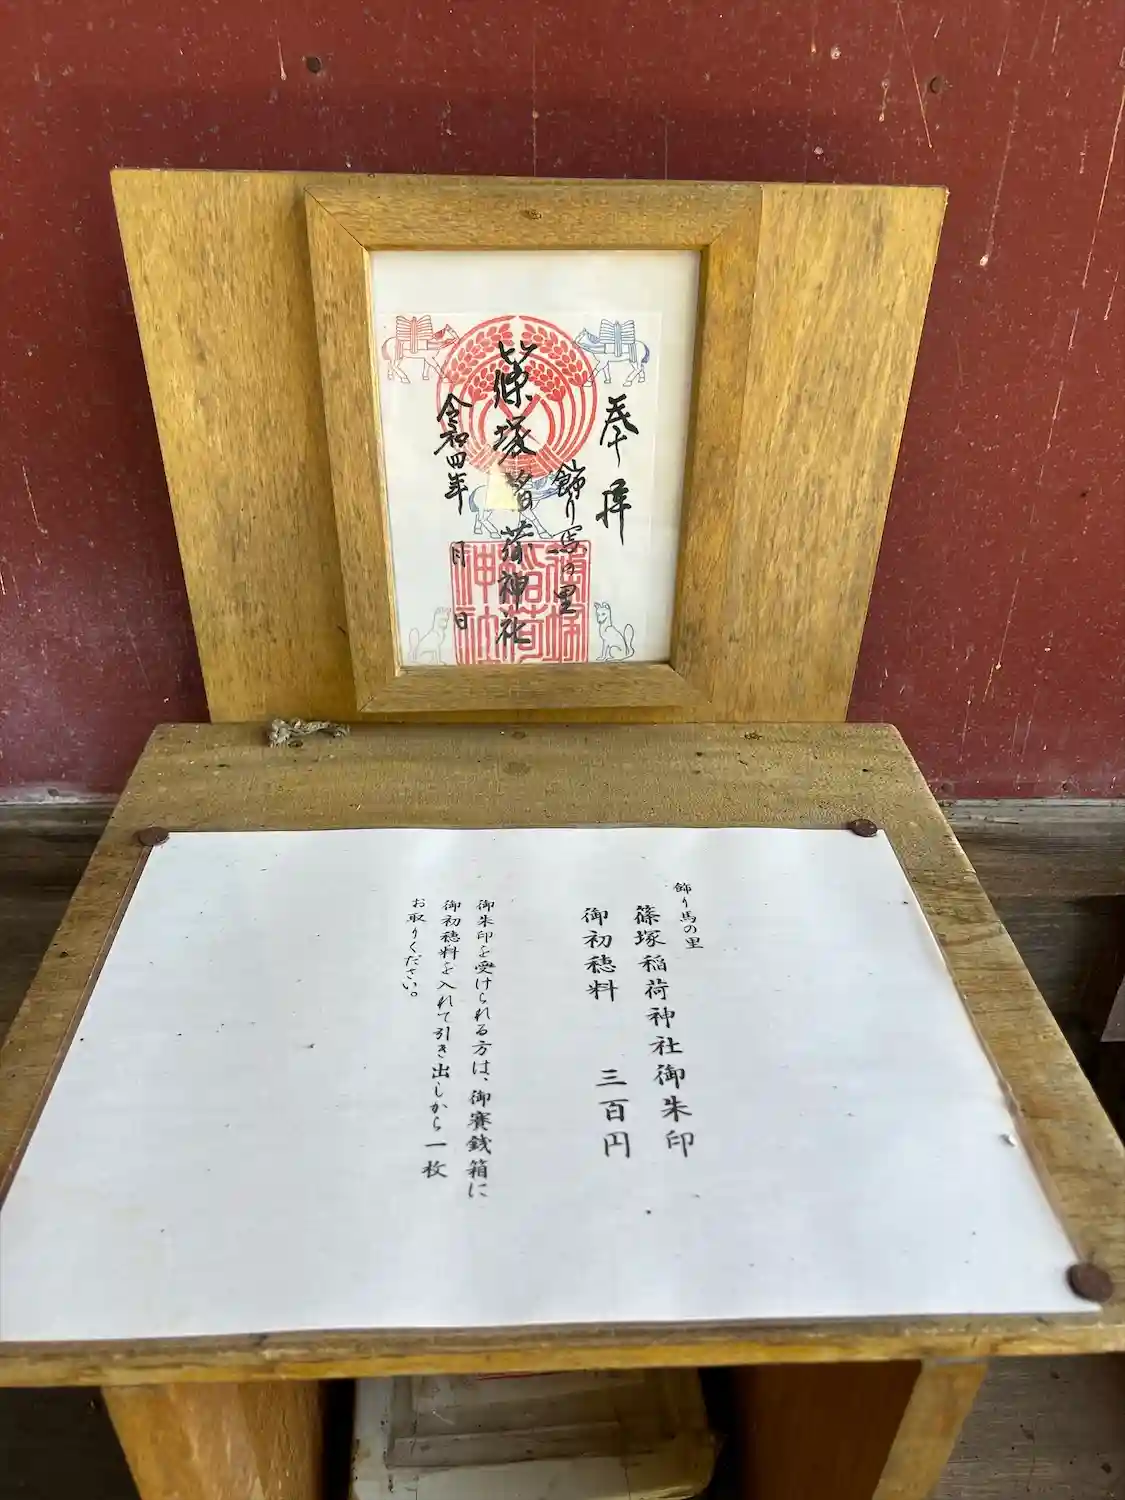 奉拝
飾り馬の里
篠塚稲荷神社
令和四年 月 日
飾り馬の里
篠塚稲荷神社御朱印
御初穂料 三百円
御朱印を受けられる方は、御賽銭箱に
御初穂料を入れて引き出しから一枚
お取りください。